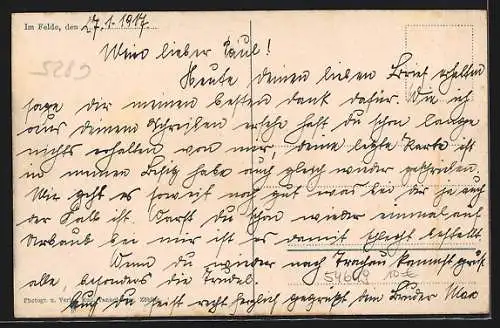 Im Felde, den 27.1.1917.
Mein lieber Paul!
Heute deinen lieben Brief erhalten
sage dir meinen besten dank dafür. Wie ich
aus deinem Schreiben ersehe hast du schon lange
nichts erhalten von mir, deine letzte Karte ist
in meinen Besitz habe auch gleich wieder geschrieben.
Mir geht es soweit noch gut was bei dir ja auch
der Fall ist. Darfst du schon wieder einmal auf
Urlaub bei mir ist es damit schlecht bestellt
Wenn du wieder nach Trachau kommst grüß
alle, besonders die Trudel
Auch du seist recht herzlich gegrüßt dein Bruder Max
54699 10€
Photogr. u. Verl.